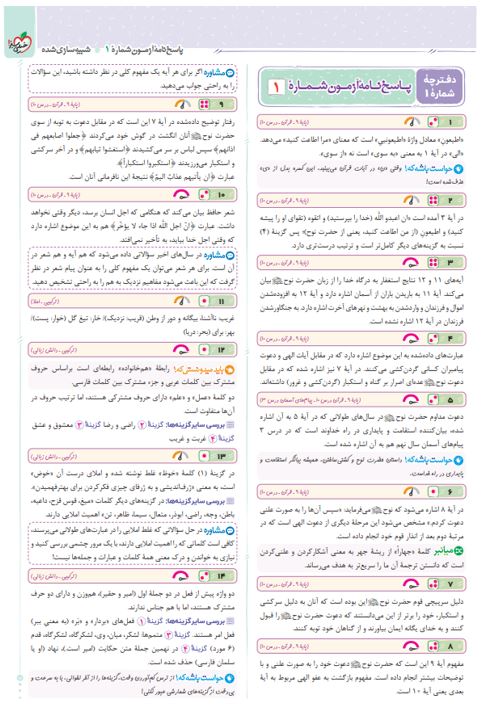 پاسخ‌نامهٔ آزمون شمارهٔ ۱ شبیه‌سازی‌شده
دفترچهٔ شمارهٔ ۱
پاسخ‌نامهٔ آزمون شمارهٔ ۱
۱ (پایهٔ ۹ - قرآن - درس ۱۰)
«اطیعونِ» معادل واژهٔ «اطیعونی» است که معنای «مرا اطاعت کنید» می‌دهد.
«الی» در آیهٔ ۱ به معنی «به سوی» است نه «از سوی».
حواست باشه که!
۲ (پایهٔ ۹ - قرآن - درس ۱۰)
در آیهٔ ۳ آمده است «ان اعبدو اللّٰه (خدا را بپرستید) و اتقوه (تقوای او را پیشه
کنید) و اطیعونِ (از من اطاعت کنید، یعنی از حضرت نوح)» پس گزینهٔ (۴)
نسبت به گزینه‌های دیگر کامل‌تر است و ترتیب درست‌تری دارد.
۳ (پایهٔ ۹ - قرآن - درس ۱۰)
آیه‌های ۱۱ و ۱۲ نتایج استغفار به درگاه خدا را از زبان حضرت نوح بیان
می‌کند. آیهٔ ۱۱ به باریدن باران از آسمان اشاره دارد و آیهٔ ۱۲ به افزوده‌شدن
اموال و فرزندان و واردشدن به بهشت و نهرهای آخرت اشاره دارد. به جنگاورشدن
فرزندان در آیهٔ ۱۲ اشاره نشده است.
۴ (پایهٔ ۹ - قرآن - درس ۱۰)
عبارت‌های داده‌شده به این موضوع اشاره دارد که در مقابل آیات الهی و دعوت
پیامبران کسانی گردن‌کشی می‌کنند. در آیهٔ ۷ نیز اشاره شده که در مقابل
دعوت نوح عده‌ای اصرار بر گناه و استکبار (گردن‌کشی و غرور) داشته‌اند.
۵ (پایهٔ ۹ - قرآن - درس ۱۰، پیام‌های آسمان - درس ۳)
دعوت مداوم حضرت نوح در سال‌های طولانی که در آیهٔ ۵ به آن اشاره
شده، بیان‌کننده استقامت و پایداری در راه خداوند است که در درس ۳
پیام‌های آسمان سال نهم هم به آن اشاره شده است.
حواست باشه که! داستان حضرت نوح و کشتی‌ساختن، همیشه بیانگر استقامت و
پایداری است.
۶ (پایهٔ ۹ - قرآن - درس ۱۰)
در آیهٔ ۸ اشاره می‌شود که نوح می‌فرماید: «سپس آن‌ها را به صورت علنی
دعوت کردم.» مشخص می‌شود این مرحلهٔ دیگری از دعوت الهی است که در
مرتبهٔ دوم بعد از انذار قوم خود انجام داده است.
میانبر کلمهٔ «جهاراً» از ریشهٔ جهر به معنی آشکارکردن و علنی‌کردن
است که دانستن ترجمهٔ آن ما را سریع‌تر به هدف می‌رساند.
۷ (پایهٔ ۹ - قرآن - درس ۱۰)
دلیل سرپیچی قوم حضرت نوح این بوده است که آنان به دلیل سرکشی
و استکبار، خود را برتر از این می‌دانستند که دعوت حضرت نوح را قبول
کنند و به خدای یگانه ایمان بیاورند و از گناهان خود توبه کنند.
۸ (پایهٔ ۹ - قرآن - درس ۱۰)
مفهوم آیهٔ ۹ این است که حضرت نوح دعوت خود را به صورت علنی و با
توضیحات بیشتر انجام داده است. مفهوم بازگشت به عفو الهی مربوط به آیهٔ
بعدی یعنی آیهٔ ۱۰ است.
مشاوره اگر برای هر آیه یک مفهوم کلی در نظر داشته باشید، این سؤالات
را به راحتی جواب می‌دهید.
۹ (پایهٔ ۹ - قرآن - درس ۱۰)
رفتار توضیح داده‌شده در آیهٔ ۷ این است که در مقابل دعوت به توبه از سوی
حضرت نوح آنان انگشت در گوش خود می‌کردند ﴿جعلوا اصابعهم فی
اذانهم﴾ سپس لباس بر سر می‌کشیدند ﴿استغشوا ثیابهم﴾ و در آخر سرکشی
و استکبار می‌ورزیدند ﴿استکبروا استکباراً﴾.
عبارت ﴿ان یأتیهم عذابٌ الیمٌ﴾ نتیجهٔ این نافرمانی آنان است.
۱۰ (پایهٔ ۹ - قرآن - درس ۱۰)
شعر حافظ بیان می‌کند که هنگامی که اجل انسان برسد، دیگر وقتی نخواهد
داشت. عبارت ﴿انّ اجل اللّٰه اذا جاء لا یؤخّر﴾ هم به این موضوع اشاره دارد
که وقتی اجل خدا بیاید، به تأخیر نمی‌افتد.
مشاوره در سال‌های اخیر سؤالاتی داده می‌شود که هم آیه و هم شعر در
آن است. برای هر شعر می‌توان یک مفهوم کلی را به عنوان پیام شعر در نظر
گرفت که این باعث می‌شود مفاهیم نزدیک به هم را به راحتی تشخیص دهید.
۱۱ (ترکیبی - املا)
غریب: ناآشنا، بیگانه و دور از وطن (قریب: نزدیک)، خار: تیغ گل (خوار: پست)،
بهر: برای (بحر: دریا)
۱۲ (ترکیبی - دانش زبانی)
باید میدونستی که! رابطهٔ «هم‌خانواده» رابطه‌ای است براساس حروف
مشترک بین کلمات عربی و جزء مشترک بین کلمات فارسی.
دو کلمهٔ «عمل» و «علم» دارای حروف مشترکی هستند، اما ترتیب حروف در
آن‌ها متفاوت است.
بررسی سایر گزینه‌ها: گزینهٔ ۲ راضی و رضا گزینهٔ ۳ معشوق و عشق
گزینهٔ ۴ غربت و غریب
۱۳ (ترکیبی - دانش زبانی)
در گزینهٔ (۱) کلمهٔ «خوط» غلط نوشته شده و املای درست آن «خوض»
است، به معنی «ژرف‌اندیشی و به ژرفای چیزی فکرکردن برای بهترفهمیدن».
بررسی سایر گزینه‌ها: در گزینه‌های دیگر کلمات «میغ، قوس قزح، داعیه،
باطن، وجه، راضی، ابوذر، متعال، سیما، ظاهر، تن» اهمیت املایی دارند.
مشاوره در حل سؤالاتی که غلط املایی را در عبارت‌های طولانی می‌پرسند،
کافی است کلماتی که را اهمیت املایی دارند، با یک مرور چشمی بررسی کنید و
نیازی به خواندن و درک معنی همهٔ کلمات و عبارات و جمله‌ها نیست!
۱۴ (ترکیبی - دانش زبانی)
دو واژه پیش از فعل در دو جملهٔ اول (امیر و حقیر)، هم‌وزن و دارای دو حرف
مشترک هستند، اما با هم جناس ندارند.
بررسی سایر گزینه‌ها: گزینهٔ ۱ فعل‌های «بردار» و «بَر» (به معنی ببر)
فعل امر هستند. گزینهٔ ۳ متمم‌ها: لشکر، میان، وی، لشکرگاه، لشکرگاه، قدم
(۶ مورد) گزینهٔ ۴ در نهمین جملهٔ متن حکایت (امیر است)، نهاد (او یا
سلمان فارسی) حذف شده است.
حواست باشه که!